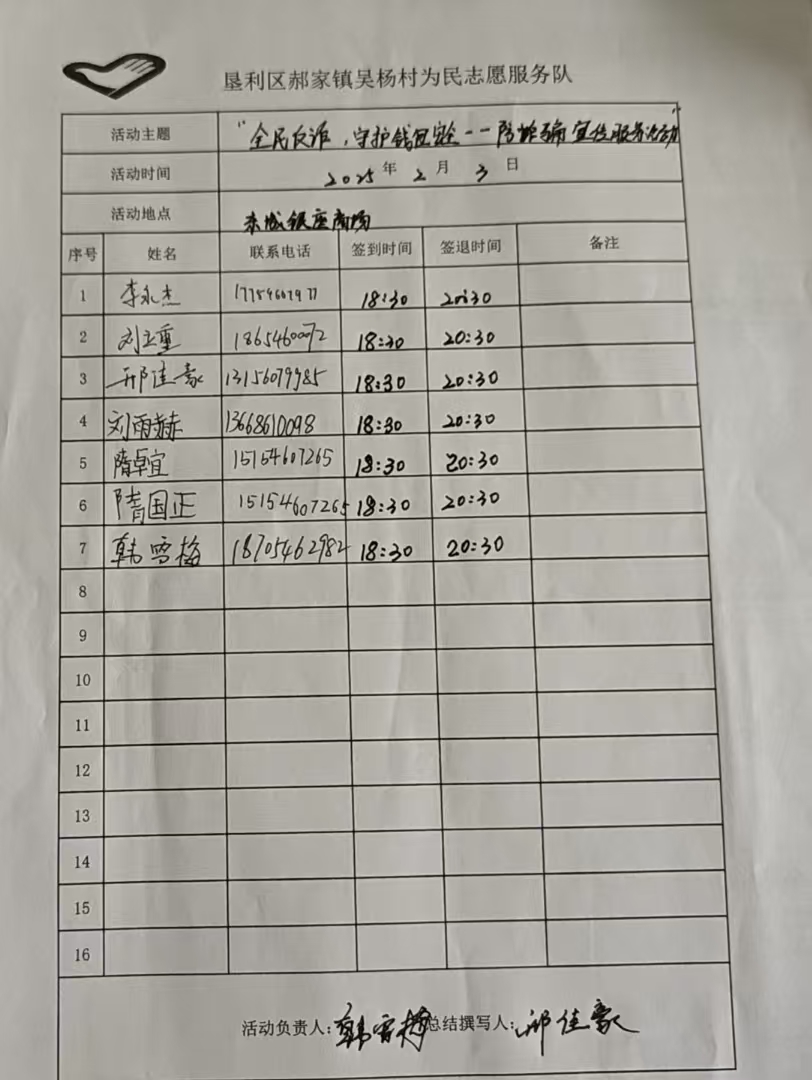 垦利区郝家镇吴杨村为民志愿服务队
活动主题 "全民反诈,守护钱包安全--防诈骗宣传服务活动"
活动时间 2025年2月3日
活动地点 东城银座商场
序号 姓名 联系电话 签到时间 签退时间 备注
1 李永杰 18:30 20:30
2 刘立重 18654600072 18:30 20:30
3 邢佳豪 18:30 20:30
4 刘雨赫 13668610098 18:30 20:30
5 隋卓宜 15154607265 18:30 20:30
6 隋国正 15154607265 18:30 20:30
7 韩雪梅 18705462982 18:30 20:30
8
9
10
11
12
13
14
15
16
活动负责人:韩雪梅 总结撰写人:邢佳豪